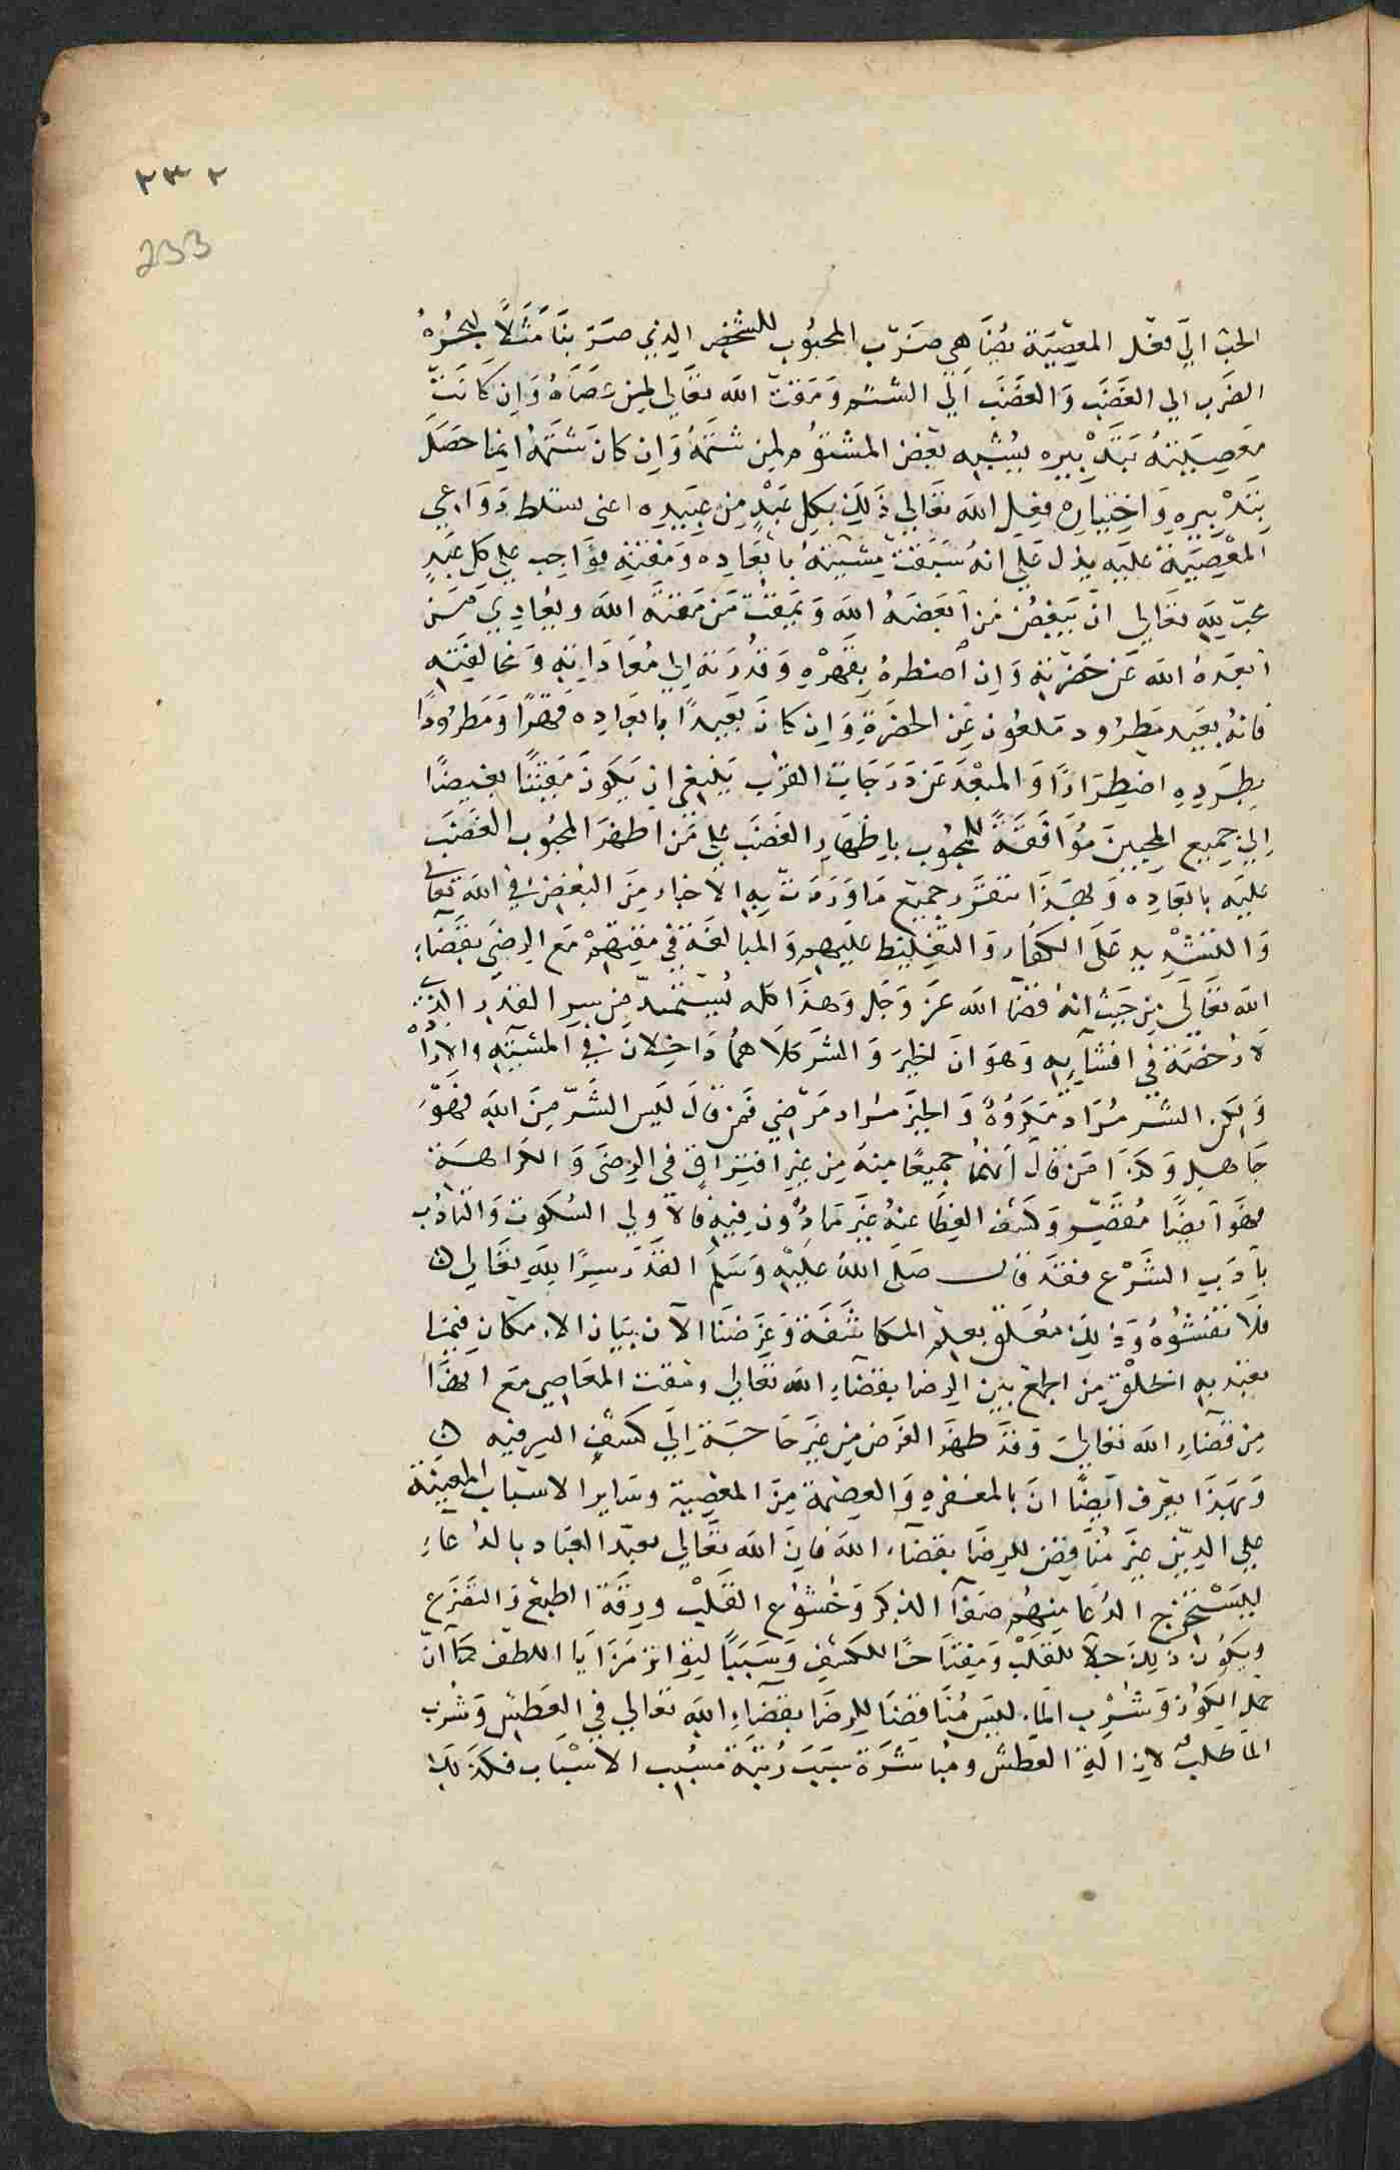 ٢٣٢
233
الحب الي فعل المعصية يضاهي ضرب المحبوب للشخص الذي ضربنا مثلا ليجره
الضرب الي الغضب والغضب الي الشتم ومقت الله تعالي لمن عصاه وان كانت
معصيته بتدبيره يشبه بغض المشتوم لمن شتمه وان كان شتمه انما حصل
بتدبيره واختياره وفعل الله تعالي ذلك بكل عبد من عبيده اعني تسلط دواعي
المعصية عليه يدل علي انه سبقت مشيته بابعاده ومقته فواجب علي كل عبد
محب لله تعالي ان يبغض من ابغضه الله ويمقت من مقته الله ويعادي من
ابعده الله عن حضرته وان اضطره بقهره وقدرته الي معاداته ومخالفته
فانه بعيد مطرود ملعون عن الحضرة وان كان بعيدا بابعاده قهرا ومطرودا
بطرده اضطرارا والمبعد عن درجات القرب ينبغي ان يكون مقيتا بغيضا
الي جميع المحبين موافقة للمحبوب باظهار الغضب علي من اظهر المحبوب الغضب
عليه بابعاده وبهذا يتقرر جميع ما وردت به الاخبار من البغض في الله تعالى
والتشديد على الكفار والتغليظ عليهم والمبالغة في مقتهم مع الرضى بقضاء
الله تعالى من حيث انه قضا الله عز وجل وهذا كله يستمد من سر القدر الذي
لا رخصة في افشايه وهو ان الخير والشر كلاهما داخلان في المشية والارادة
ولكن الشر مراد مكروه والخير مراد مرضي فمن قال ليس الشر من الله فهو
جاهل وكذا من قال انهما جميعا منه من غير افتراق في الرضى والكراهة
فهو ايضا مقصر وكشف الغطا عنه غير ماذون فيه فالاولي السكوت والتادب
بادب الشرع فقد قال صلى الله عليه وسلم القدر سر الله تعالي ن
فلا تفشوه وذلك متعلق بعلم المكاشفة وغرضنا الآن بيان الامكان فيما
تعبد به الخلق من الجمع بين الرضا بقضاء الله تعالي ومقت المعاصي مع انها
من قضاء الله تعالى وقد ظهر الغرض من غير حاجة الي كشف السر فيه ن
وبهذا يعرف ايضا ان بالمغفره والعصمة من المعصية وساير الاسباب المعينة
علي الدين غير مناقض للرضا بقضاء الله فان الله تعالي تعبد العباد بالدعاء
ليستخرج الدعا منهم صفآ الذكر وخشوع القلب ورقة الطبع والتضرع
ويكون ذلك جلآ للقلب ومفتاحا للكشف وسببا لتواتر مزايا اللطف كما ان
حمل الكوز وشرب الماء ليس مناقضا للرضا بقضاء الله تعالي في العطش وشرب
الما طلب لازالة العطش ومباشرة سبب رتبه مسبب الاسباب فكذلك